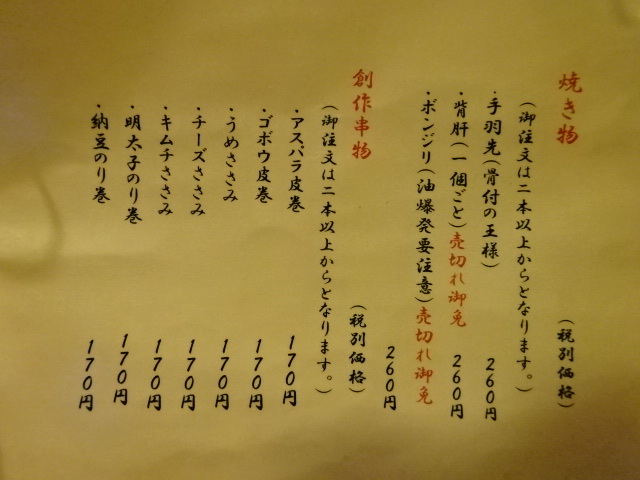 焼き物
(税別価格)
(御注文は二本以上からとなります。)
・手羽先(骨付の王様)
260円
・背肝(一個ごと)売切れ御免
260円
・ボンジリ(油爆発要注意)売切れ御免
260円
創作串物
(税別価格)
(御注文は二本以上からとなります。)
・アスパラ皮巻
170円
・ゴボウ皮巻
170円
・うめささみ
170円
・チーズささみ
170円
・キムチささみ
170円
・明太子のり巻
170円
・納豆のり巻
170円